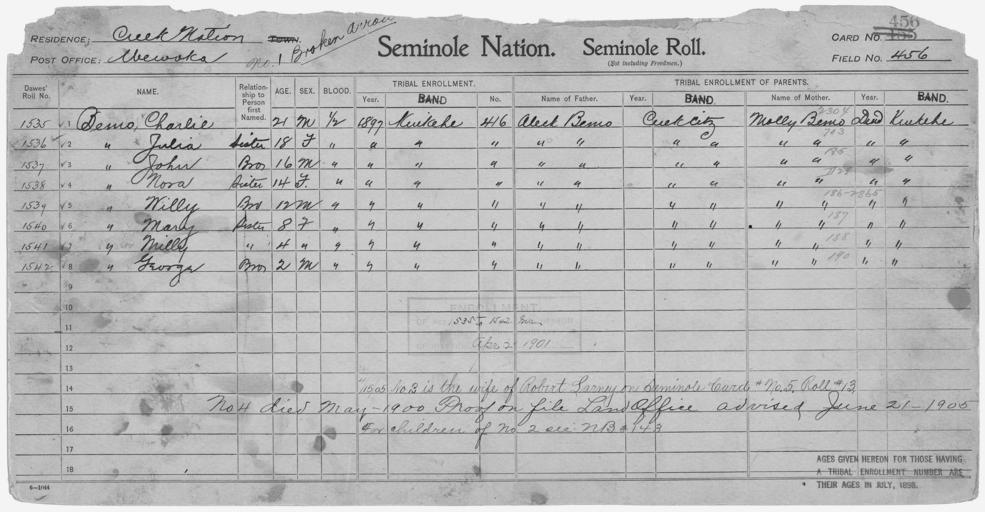 456
RESIDENCE: Creek Nation TOWN. Broken Arrow Seminole Nation. Seminole Roll. CARD NO.
POST OFFICE: Wewoka No. 1 (Not including Freedmen.) FIELD NO. 456
Dawes' Roll No. NAME. Relationship to Person first Named. AGE. SEX. BLOOD. TRIBAL ENROLLMENT. TRIBAL ENROLLMENT OF PARENTS.
Year. BAND No. Name of Father. BAND. Name of Mother. Year. BAND.
1535 √1 Bemo, Charlie 21 M 1/2 1897 416 Aleck Bemo Creek City Molly Bemo Dead
1536 √2 " Julia Sister 18 F " " " " " " " " " " " "
1537 √3 " John Bro 16 M " " " " " " " " " " " "
1538 √4 " Nora Sister 14 F. " " " " " " " " " " " "
1539 √5 " Willy Bro 12 M " " " " " " " " " " " "
1540 √6 " Mary Sister 8 F " " " " " " " " " " " "
1541 √7 " Milly " 4 " " " " " " " " " " " " "
1542 √8 " George Bro 2 M " " " " " " " " " " " "
9
10
ENROLLMENT
11
12 Apr 2 1901
13
14 No 3 is the wife of Robert Larney on Seminole Card # No. 5. Roll # 13
15 No 4 died May - 1900 Proof on file Land Office advised June 21 - 1905
16 For children of No 2 see NB # 143
17
18
AGES GIVEN HEREON FOR THOSE HAVING
A TRIBAL ENROLLMENT NUMBER ARE
THEIR AGES IN JULY, 1898.